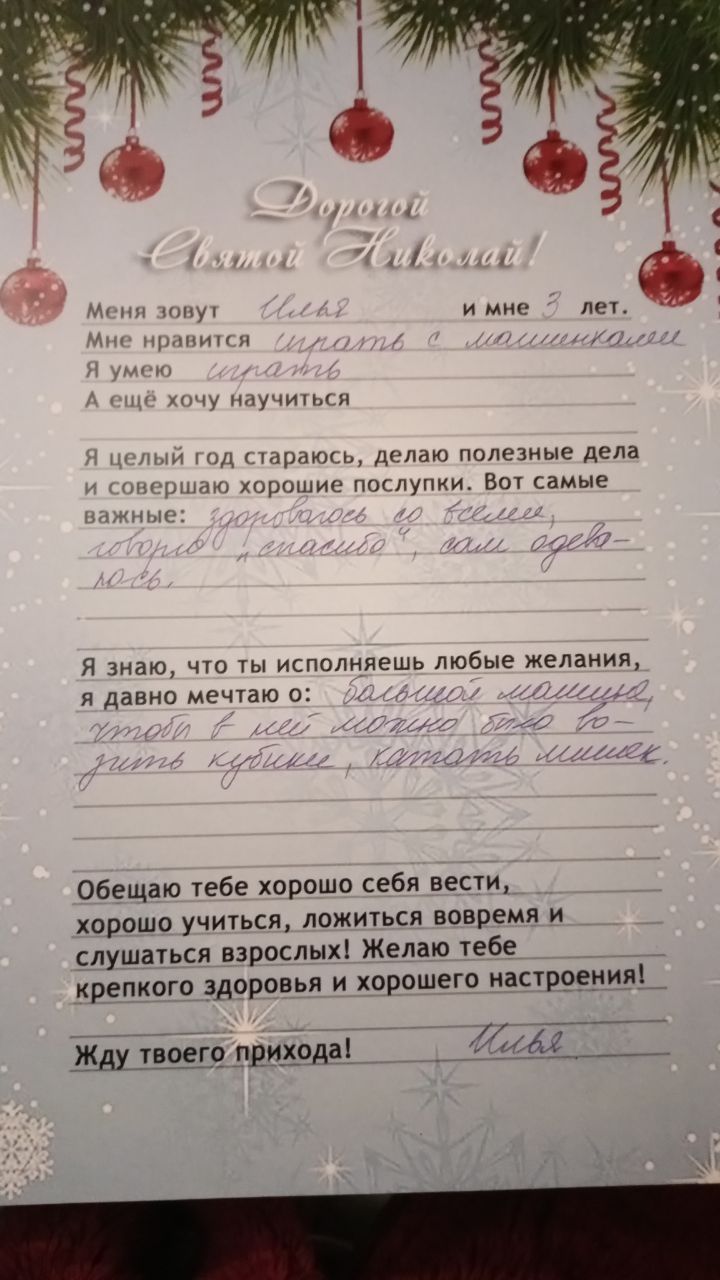 Дорогой
Святой Николай!
Меня зовут Илья и мне 3 лет.
Мне нравится играть с машинками
Я умею играть
А ещё хочу научиться
Я целый год стараюсь, делаю полезные дела
и совершаю хорошие послупки. Вот самые
важные: здороваюсь со всеми,
говорю „спасибо“, сам одева-
юсь.
Я знаю, что ты исполняешь любые желания,
я давно мечтаю о: большой машине,
чтобы в ней можно было во-
зить кубики, катать мишек.
Обещаю тебе хорошо себя вести,
хорошо учиться, ложиться вовремя и
слушаться взрослых! Желаю тебе
крепкого здоровья и хорошего настроения!
Жду твоего прихода! Илья